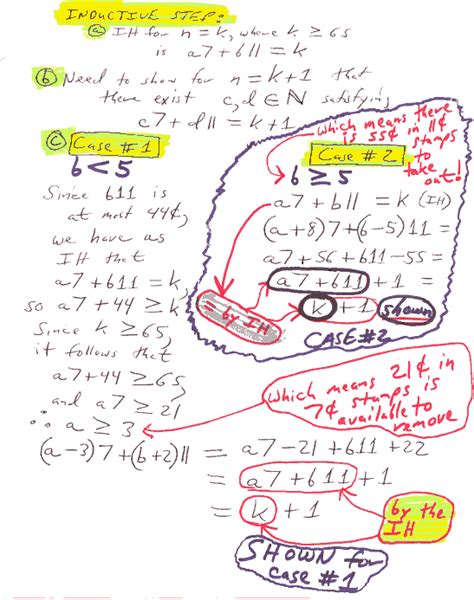 INDUCTIVE STEP:
ⓐ IH for n = k, where k ≥ 65
is a7 + b11 = k
ⓑ Need to show for n = k+1 that
there exist c, d ∈ N satisfying
c7 + d11 = k+1
ⓒ Case #1
b < 5
Since b11 is
at most 44¢,
we have as
IH that
a7 + b11 = k,
so a7 + 44 ≥ k
Since k ≥ 65,
it follows that
a7 + 44 ≥ 65,
and a7 ≥ 21
∴ a ≥ 3
(a-3)7 + (b+2)11 = a7 - 21 + b11 + 22
= a7 + b11 + 1
= k + 1
by the
IH
SHOWN for
case #1
which means 21¢ in
7¢ stamps is
available to
remove
which means there
is 55¢ in 11¢
stamps
to
take
out!
Case #2
b ≥ 5
a7 + b11 = k (IH)
(a+8)7 + (b-5)11 =
a7 + 56 + b11 - 55 =
a7 + b11 + 1 =
k + 1 shown
= by IH
CASE #2